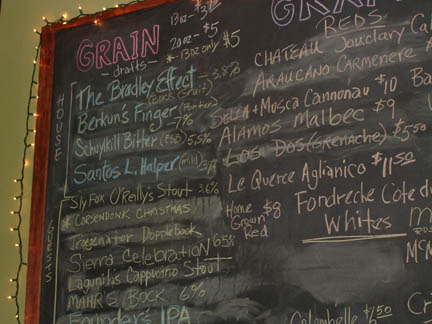 GRAIN
drafts
13oz - $3
20oz - $5
* - 13oz only $5
HOUSE
The Bradley Effect - 3.8%
Berkun's Finger (Porter)
7%
Schuylkill Bitter (ESB) 5.5%
Santos L. Halper (mild)
GUESTS
Sly Fox O'Reilly's Stout 3.6%
* Corsendonk Christmas
Troegenator Doppelbock
Sierra Celebration 6.5%
Lagunitas Cappuccino Stout
MAHR'S BOCK 6%
Founders IPA
REDS
CHATEAU Jouclary
ARAUCANO CARMENERE
SELLA + MOSCA CANNONAU $10
ALAMOS MALBEC $9
LOS DOS (GRENACHE) $5.50
LE QUERCE AGLIANICO $11.50
Home Grown Red $8
FONDRECHE Cote du
WHITES